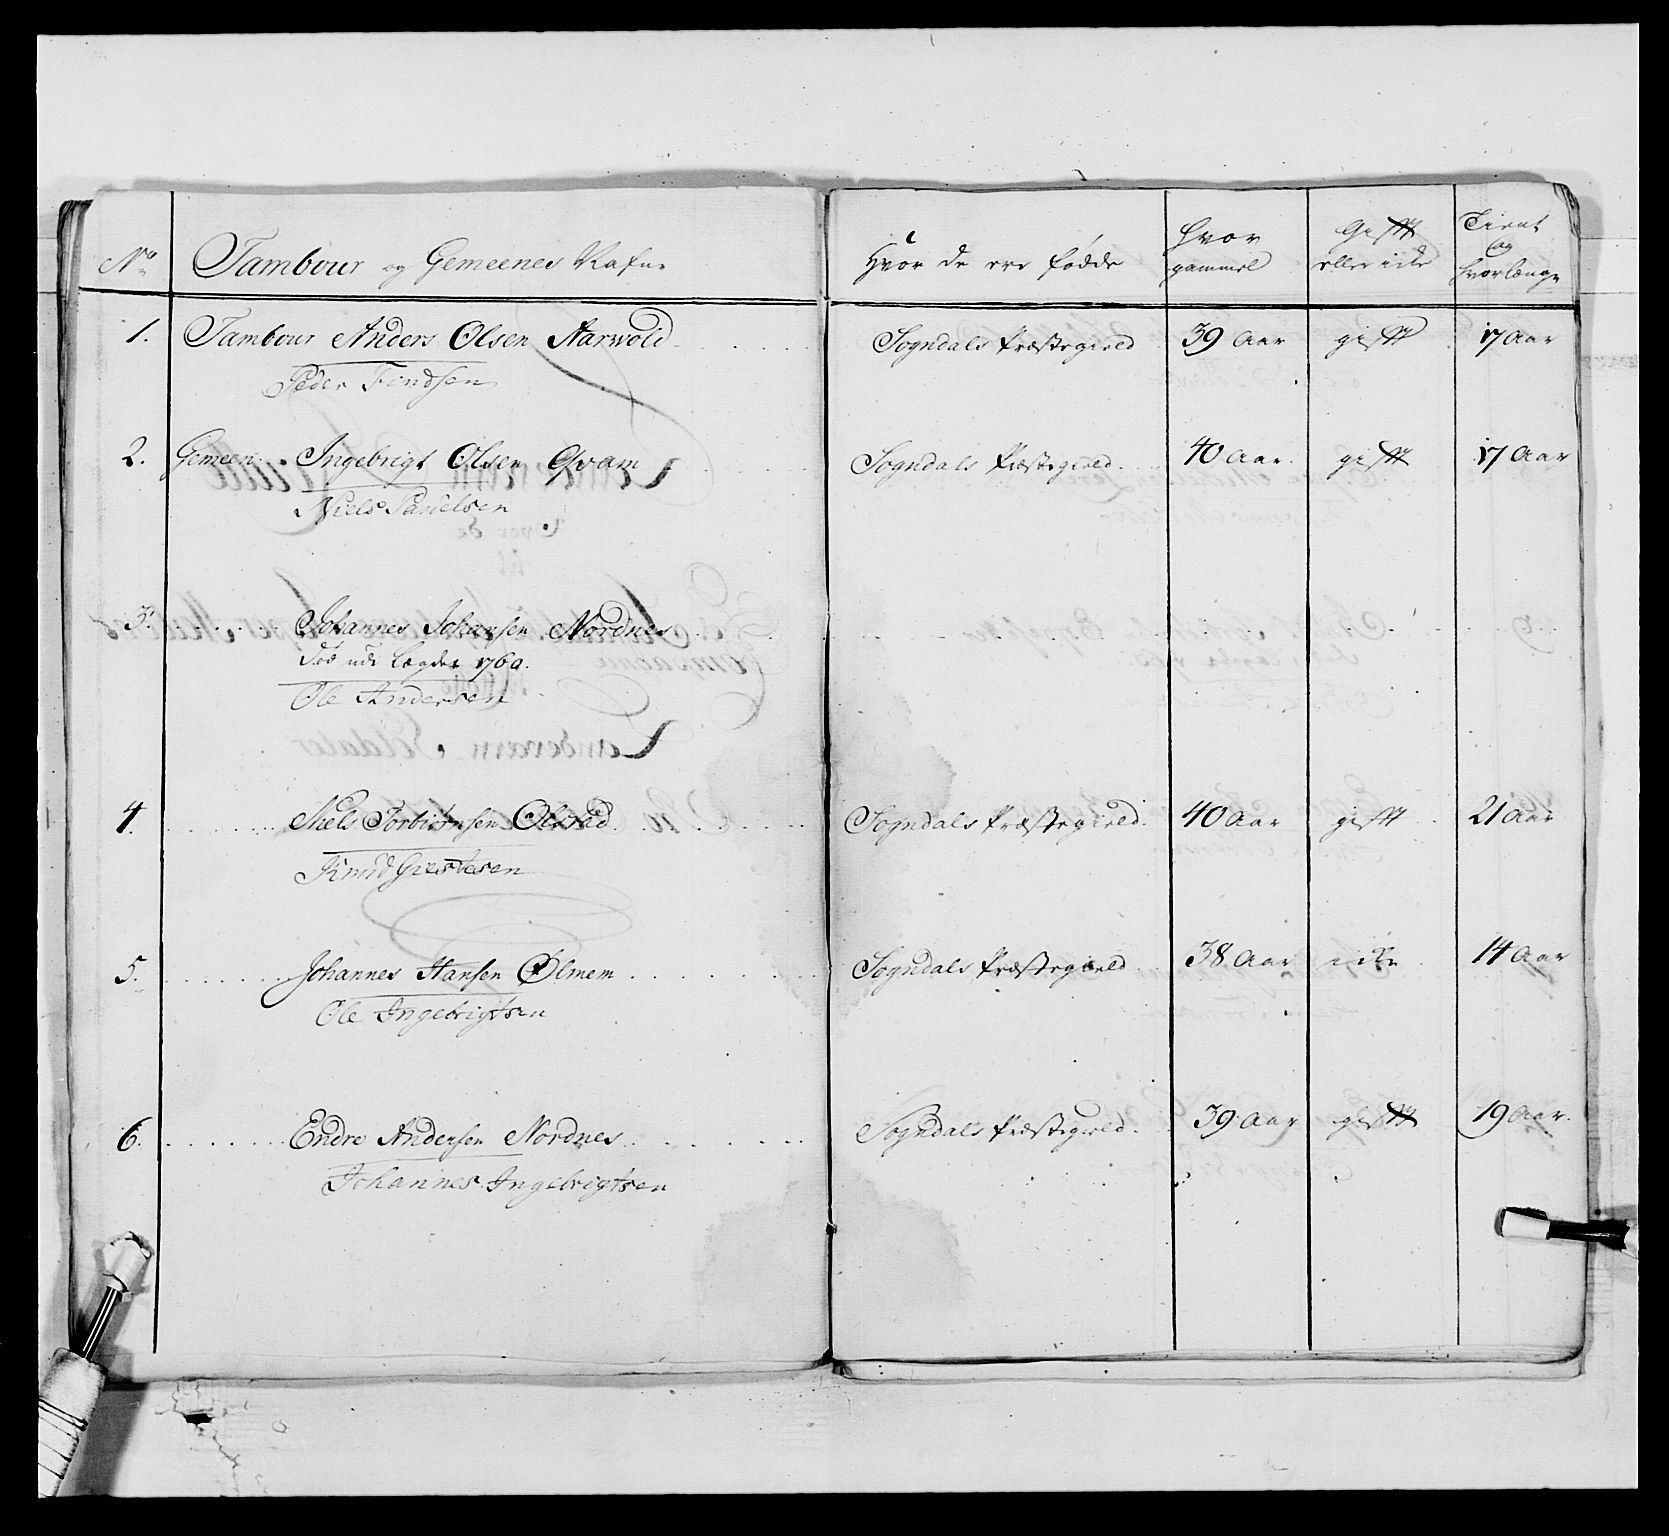 No Tambour og Gemeenes Nafne Hvor de ere fødde Hvor gammel Gifft eller icke Tient og hvorlænge
1. Tambour Anders Olsen Aarwold Sogndals Præstegield 39 Aar gifft 17 Aar
Peder
2. Gemeen Ingebrigt Olsen Qvam Sogndals Præstegield. 40 Aar gifft 17 Aar
Niels Paulsen
3. Johannes Johansen Nordnes
Død udi Lægdet 1760.
Ole Andersen
4. Niels Torbiørnsen Olstad Sogndals Præstegield. 40 Aar gifft 21 Aar
Knud
5. Johannes Hansen Ølmem Sogndals Præstegield 38 Aar icke 14 Aar
Ole Ingebrigtsen
6. Endre Andersen Nordnes Sogndals Præstegield. 39 Aar gifft 19 Aar.
Johannes Ingebrigtsen